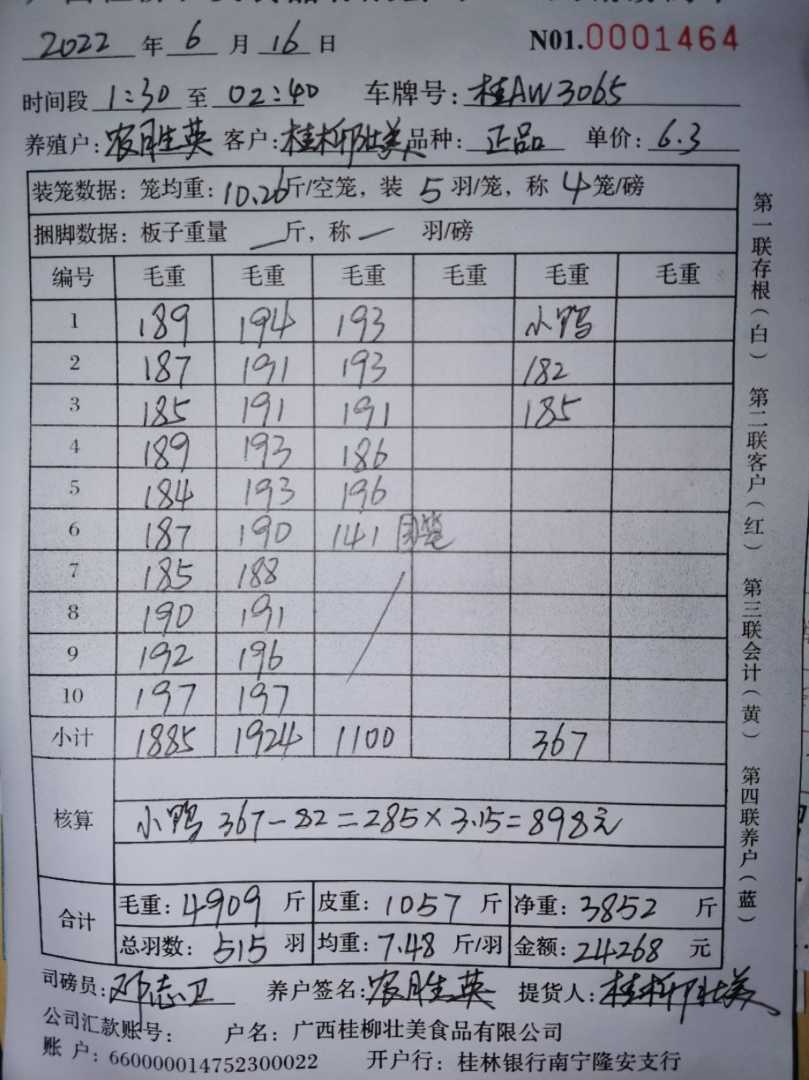 2022 年 6 月 16 日 N01.0001464
时间段 1:30 至 02:40 车牌号: 桂AW3065
养殖户: 农胜英 客户: 桂柳壮美 品种: 正品 单价: 6.3
装笼数据: 笼均重: 10.26 斤/空笼, 装 5 羽/笼, 称 4 笼/磅
捆脚数据: 板子重量 — 斤, 称 — 羽/磅
编号 毛重 毛重 毛重 毛重 毛重 毛重
1 189 194 193 小鸭
2 187 191 193 182
3 185 191 191 185
4 189 193 186
5 184 193 196
6 187 190 141
7 185 188
8 190 191
9 192 196
10 197 197
小计 1885 1924 1100 367
核算 小鸭 367-82=285×3.15=898元
合计 毛重: 4909 斤 皮重: 1057 斤 净重: 3852 斤
总羽数: 515 羽 均重: 7.48 斤/羽 金额: 24268 元
司磅员: 邓志卫 养户签名: 农胜英 提货人: 桂柳壮美
公司汇款账号: 户名: 广西桂柳壮美食品有限公司
账户: 660000014752300022 开户行: 桂林银行南宁隆安支行
第一联存根(白) 第二联客户(红) 第三联会计(黄) 第四联养户(蓝)